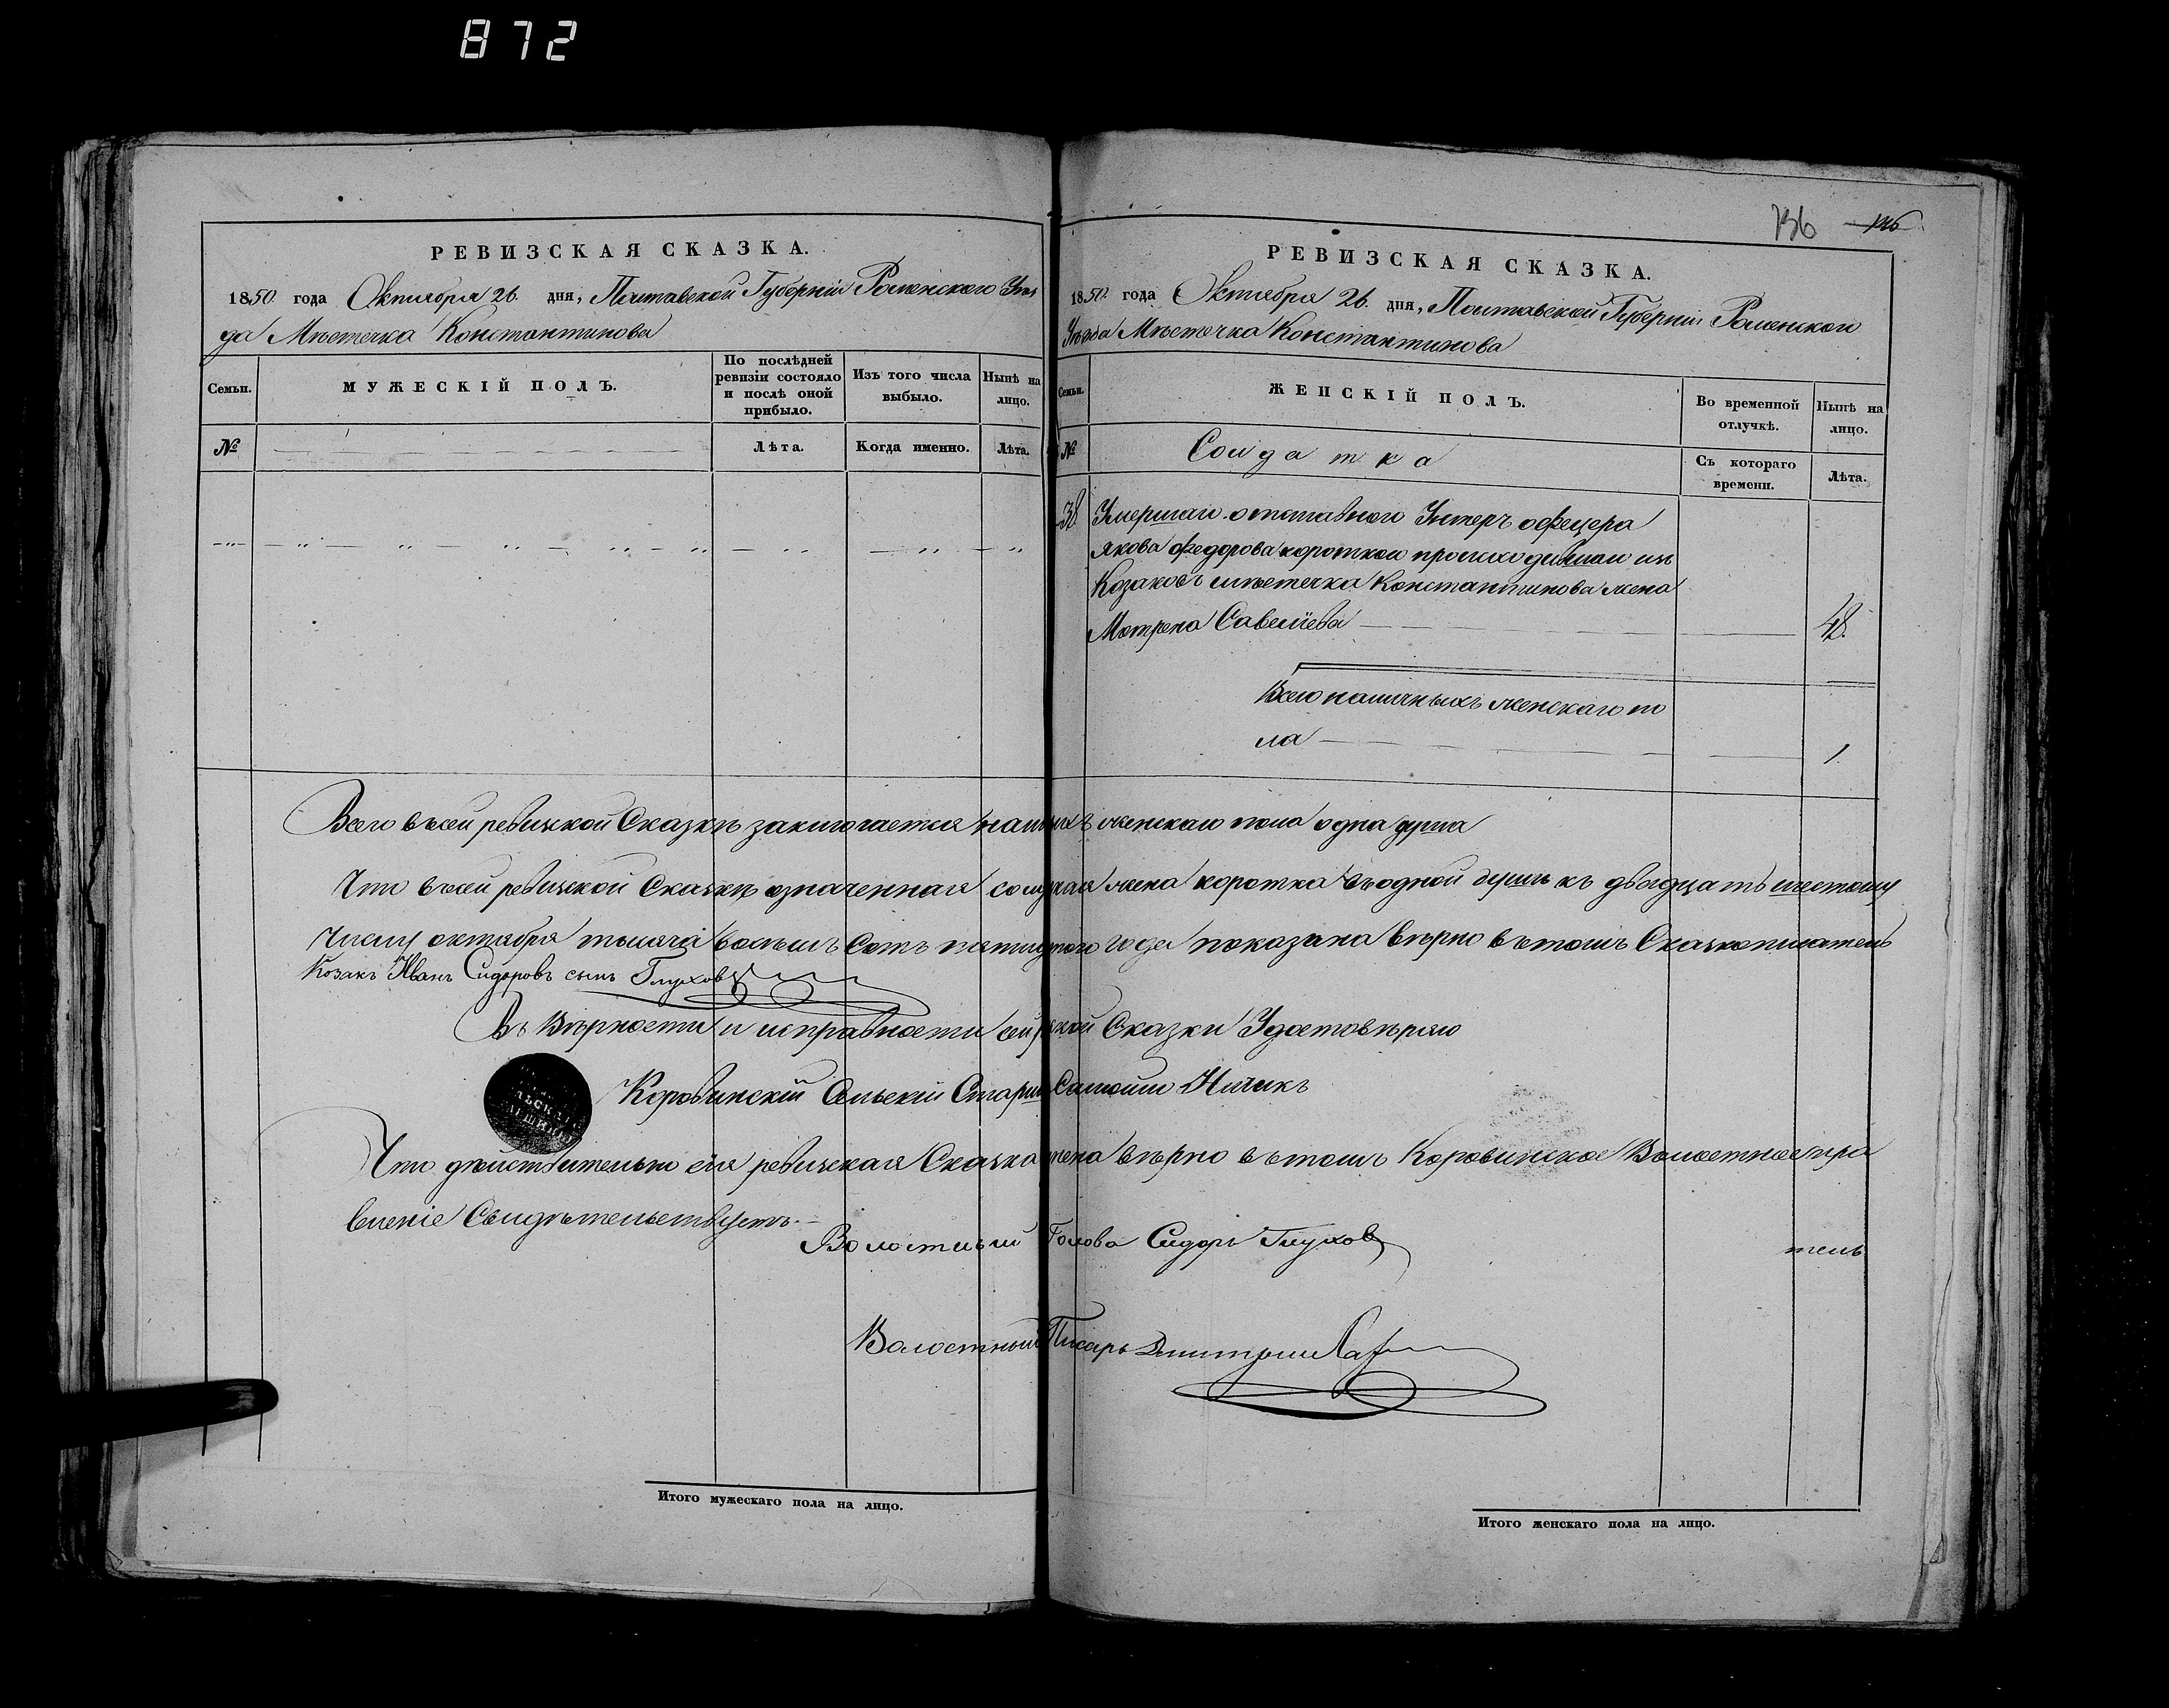 872
136 146
РЕВИЗСКАЯ СКАЗКА.
1850. года Октября 26. дня, Полтавской Губерніи Роменского Уѣз
да Мѣстечка Константинова
Семьи.
МУЖЕСКІЙ ПОЛЪ.
По послѣдней ревизіи состояло и послѣ оной прибыло.
Изъ того числа выбыло.
Нынѣ на лицо.
№
Лѣта.
Когда именно.
Лѣта.
РЕВИЗСКАЯ СКАЗКА.
1850. года Октября 26. дня, Полтавской Губерніи Роменского
Уѣзда Мѣстечка Константинова
Семьи.
ЖЕНСКІЙ ПОЛЪ.
Во временной отлучкѣ.
Нынѣ на лицо.
№
Солдатка
Съ котораго времени.
Лѣта.
38. Умершаго отставного Унтеръ офецера
якова федорова короткого происходившаго изъ
Козаковъ мѣстечка Константинова жена
Мотрена Савелїева 48.
Всего наличныхъ женскаго по
ла 1.
Всего в сей ревизской Сказкѣ заключается налич женскаго пола одна душа
Что в сей ревизской Сказкѣ означенная жена коротка въ одной душѣ къ двадцать шестому
Числу октября тысяча восемь Сотъ года показана вѣрно в томъ Сказкописатель
Козакъ Иванъ Сидоровъ сынъ Глухов
Въ Вѣрности и исправности сей Сказки Удостовѣряю
Коровинскїй Сельскїй Старши Самойло
Что дѣйствительно сїя ревизская Сказка вѣрно в томъ Коровинское Волостное пра
вленїе Свидѣтельствуетъ.
Волостный Голова Сидоръ Глухов
тель
Волостный Писарь
Итого мужескаго пола на лицо.
Итого женскаго пола на лицо.